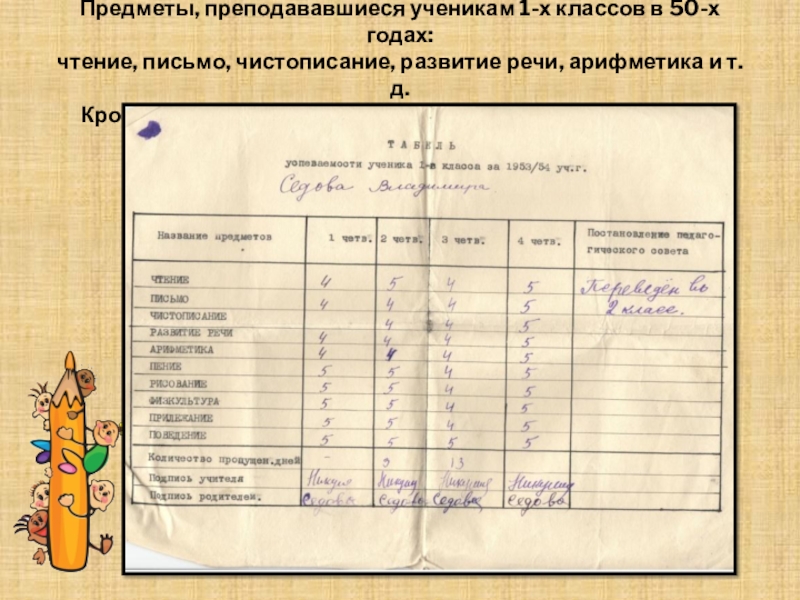 Предметы, преподававшиеся ученикам 1-х классов в 50-х
годах:
чтение, письмо, чистописание, развитие речи, арифметика и т.
д.
Кро
ТАБЕЛЬ
успеваемости ученика 1-в класса за 1953/54 уч.г.
Седова Владимира
Название предметов 1 четв. 2 четв. 3 четв. 4 четв. Постановление педаго-
гического совета
ЧТЕНИЕ 4 5 4 5 Переведён во
ПИСЬМО 4 4 4 5 2 класс.
ЧИСТОПИСАНИЕ 4 4 5
РАЗВИТИЕ РЕЧИ 4 4 4 5
АРИФМЕТИКА 4 4 4 5
ПЕНИЕ 5 5 4 5
РИСОВАНИЕ 5 5 4 5
ФИЗКУЛЬТУРА 5 5 4 5
ПРИЛЕЖАНИЕ 5 5 4 5
ПОВЕДЕНИЕ 5 5 5 5
Количество пропущен.дней - 13
Подпись учителя
Подпись родителей. Седовы Седовы Седовы Седовы